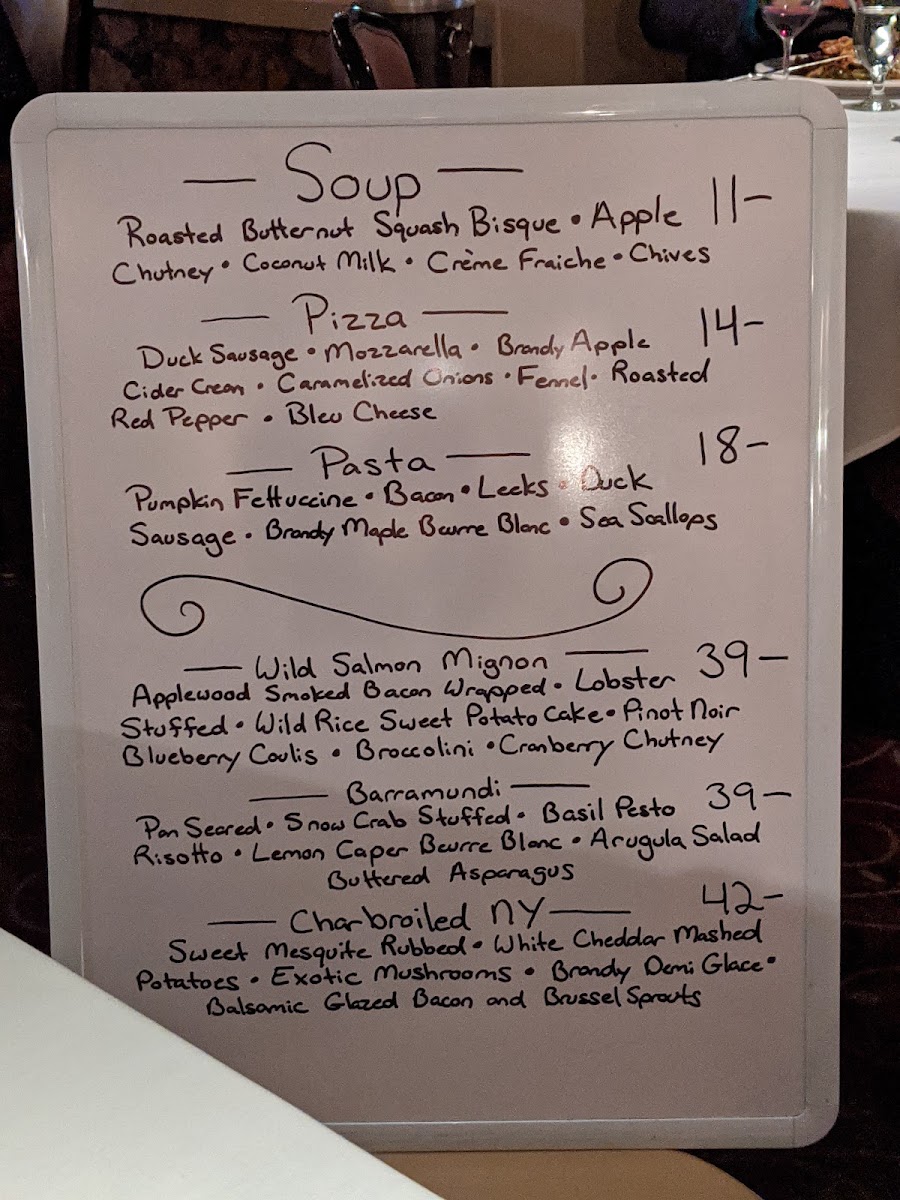 — Soup —
Roasted Butternut Squash Bisque • Apple 11-
Chutney • Coconut Milk • Crème Fraiche • Chives
— Pizza — 14-
Duck Sausage • Mozzarella • Brandy Apple
Cider Cream • Caramelized Onions • Fennel • Roasted
Red Pepper • Bleu Cheese
— Pasta — 18-
Pumpkin Fettuccine • Bacon • Leeks • Duck
Sausage • Brandy Maple Beurre Blanc • Sea Scallops
— Wild Salmon Mignon — 39-
Applewood Smoked Bacon Wrapped • Lobster
Stuffed • Wild Rice Sweet Potato Cake • Pinot Noir
Blueberry Coulis • Broccolini • Cranberry Chutney
— Barramundi — 39-
Pan Seared • Snow Crab Stuffed • Basil Pesto
Risotto • Lemon Caper Beurre Blanc • Arugula Salad
Buttered Asparagus
— Charbroiled NY — 42-
Sweet Mesquite Rubbed • White Cheddar Mashed
Potatoes • Exotic Mushrooms • Brandy Demi Glace •
Balsamic Glazed Bacon and Brussel Sprouts